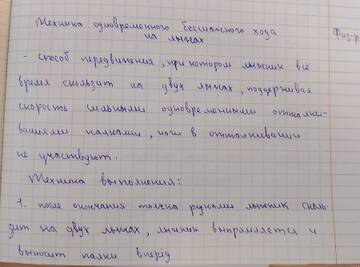 Техника одновременного бесшажного хода
на лыжах
Физ-р
- способ передвижения, при котором лыжник всё
время скользит на двух лыжах, поддерживая
скорость сильными одновременными отталки-
ваниями палками, ноги в отталкивании
не участвуют.
Техника выполнения:
1. после окончания толчка руками лыжник сколь-
зит на двух лыжах, лыжник выпрямляется и
выносит палки вперёд